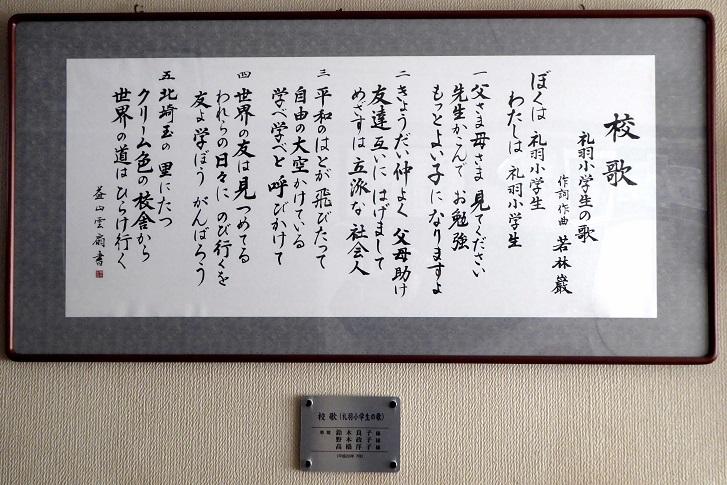 校歌
礼羽小学生の歌
作詞 作曲 若林巌
ぼくは 礼羽小学生
わたしは 礼羽小学生
一 父さま母さま 見てください
先生かこんで お勉強
もっとよい子に なりますよ
二 きょうだい仲よく 父母助け
友達互いに はげまして
めざすは 立派な 社会人
三 平和のはとが 飛びたって
自由の大空 かけている
学べ学べと 呼びかけて
四 世界の友は 見つめてる
われらの日々に のび行くを
友よ学ぼう がんばろう
五 北埼玉の 里にたつ
クリーム色の 校舎から
世界の道は ひらけ行く
雲扇書
校歌(礼羽小学生の歌)
鈴木良子 様
野本政子 様
高橋洋子 様